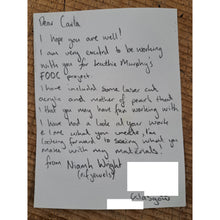 Dear Carla
I hope you are well!
I am very excited to be working
with you for Murphy's
FOOC project
I have included some laser cut
acrylic and mother of pearl that
I that you may have fun working with
I have had a look at your work
& love what you create, I'm
looking forward to seeing what you
make with my materials.
from Niamh Wright
(nfjewels)
Glasgow